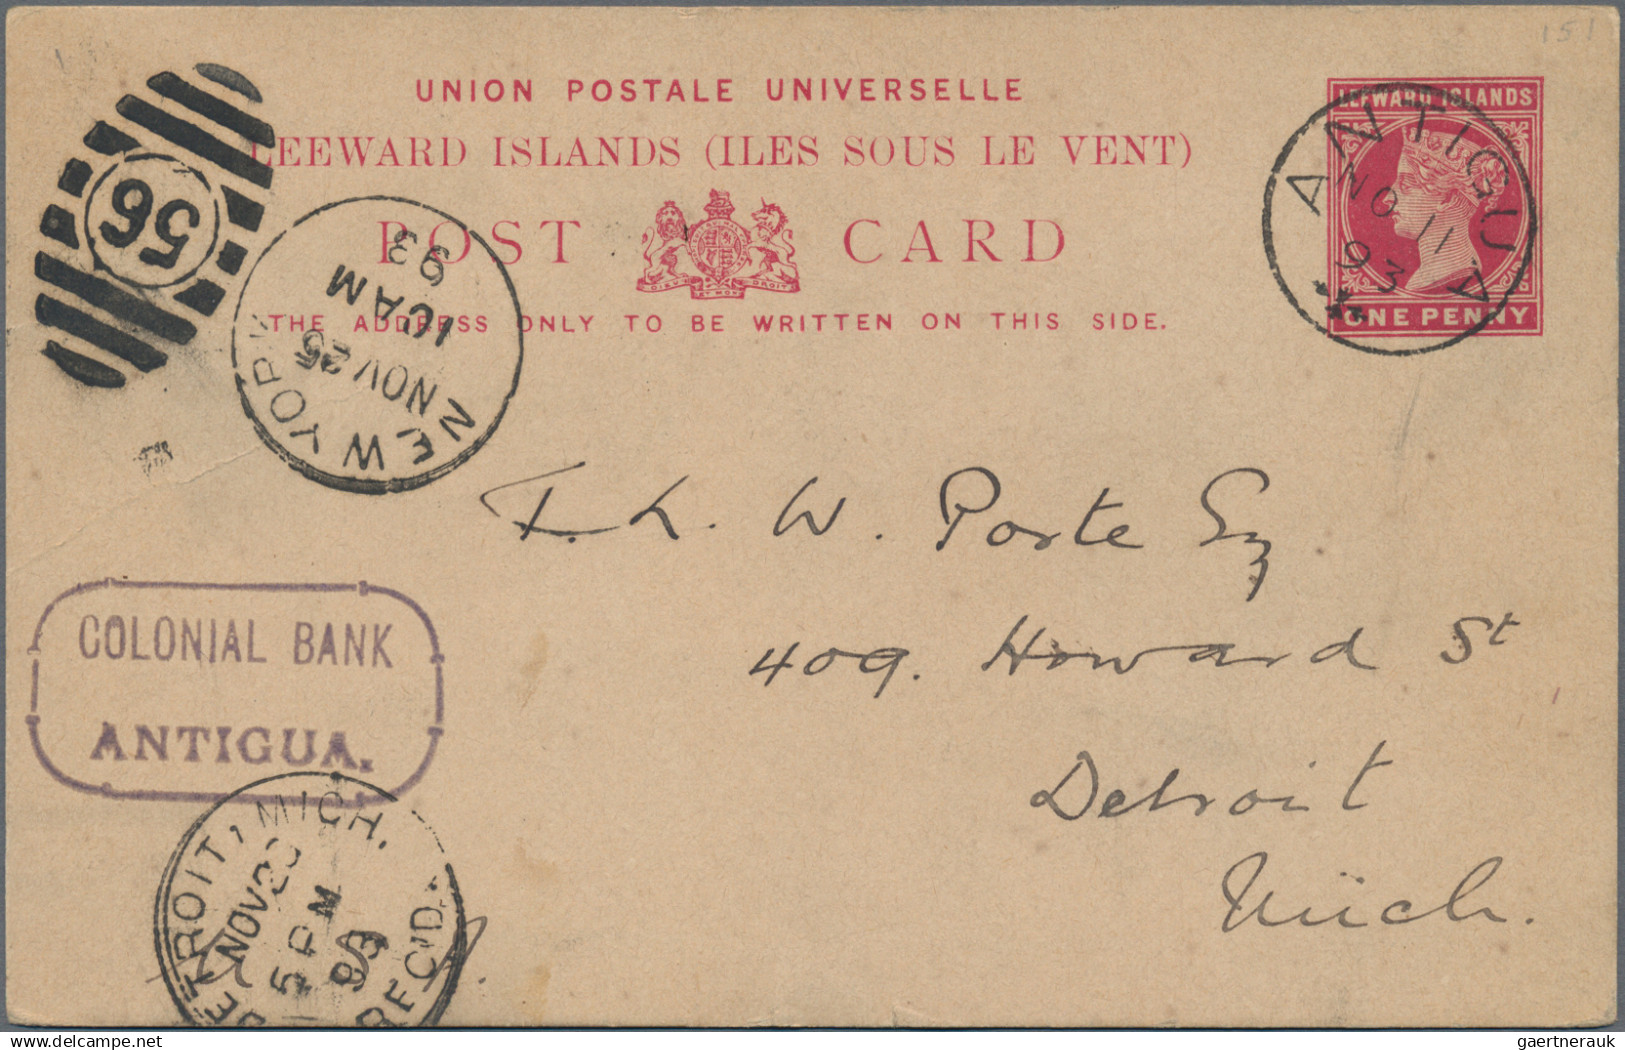 151
UNION POSTALE UNIVERSELLE
LEEWARD ISLANDS (ILES SOUS LE VENT)
POST CARD
DIEU ET MON DROIT
THE ADDRESS ONLY TO BE WRITTEN ON THIS SIDE.
LEEWARD ISLANDS
ONE PENNY
ANTIGUA
NO 11
93
56
NEW YORK
NOV 25
10 AM
93
T. L. W. Porte Esq
409. Howard St
Detroit
Mich.
COLONIAL BANK
ANTIGUA.
DETROIT, MICH.
NOV
5 PM
93
REC'D.
gaertnerauk